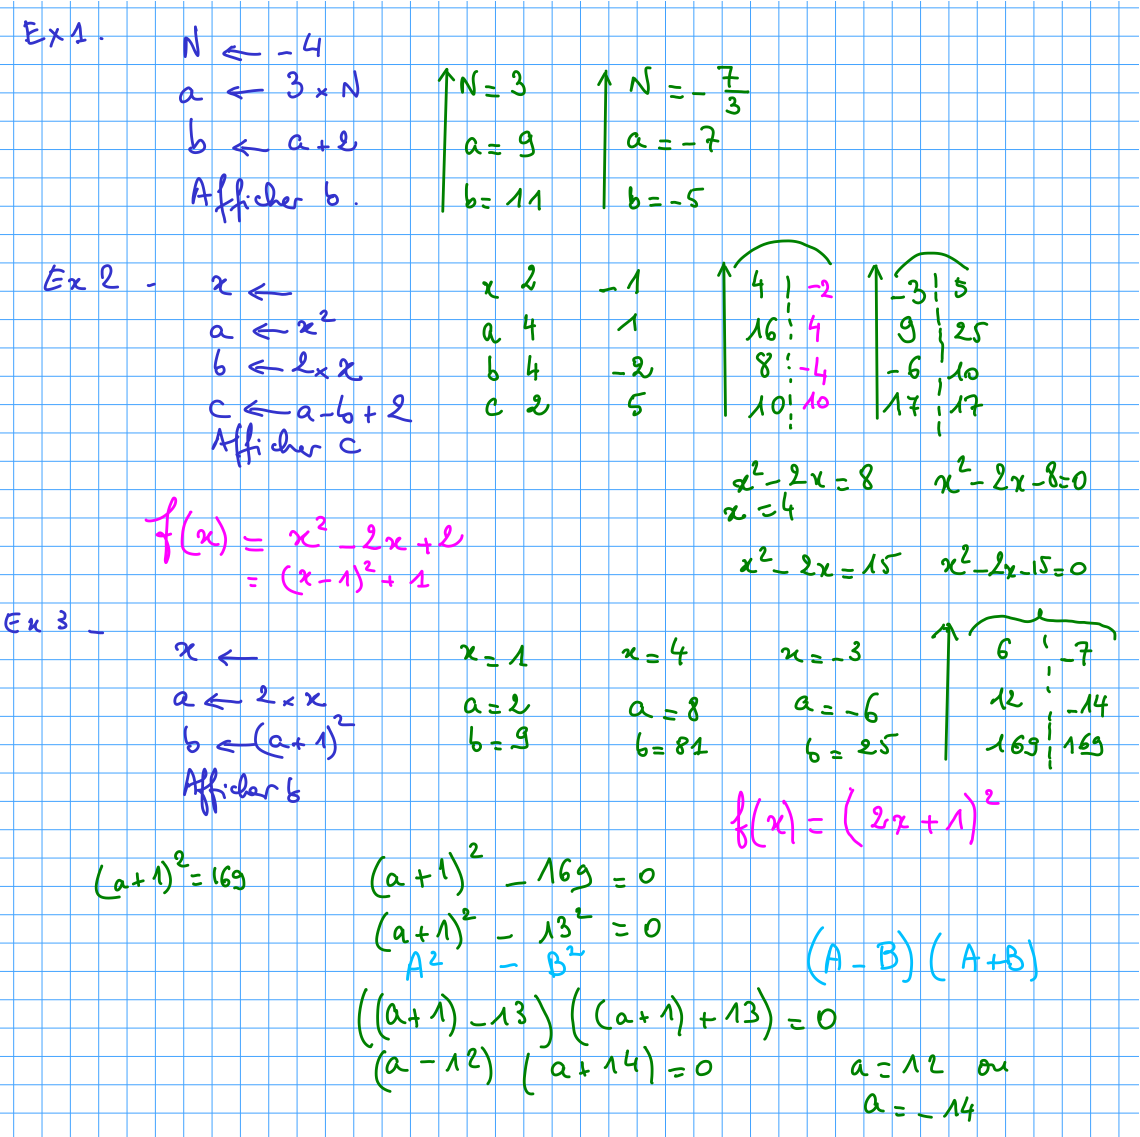 Ex 1.
N ← -4
a ← 3 × N
b ← a+2
Afficher b.
N = 3
a = 9
b = 11
N = -7/3
a = -7
b = -5
Ex 2 -
x ←
a ← x²
b ← 2 × x
c ← a-b+2
Afficher c
x 2 -1 4 -2 -3 5
a 4 1 16 4 9 25
b 4 -2 8 -4 -6 10
c 2 5 10 10 17 17
x² - 2x = 8 x² - 2x - 8 = 0
x = 4
x² - 2x = 15 x² - 2x - 15 = 0
f(x) = x² - 2x + 2
= (x-1)² + 1
Ex 3 -
x ←
a ← 2 × x
b ← (a+1)²
Afficher b
x = 1 x = 4 x = -3 6 -7
a = 2 a = 8 a = -6 12 -14
b = 9 b = 81 b = 25 169 169
f(x) = (2x+1)²
(a+1)² = 169 (a+1)² - 169 = 0
(a+1)² - 13² = 0
A² - B² (A-B)(A+B)
((a+1)-13)((a+1)+13) = 0
(a-12)(a+14) = 0 a = 12 ou
a = -14